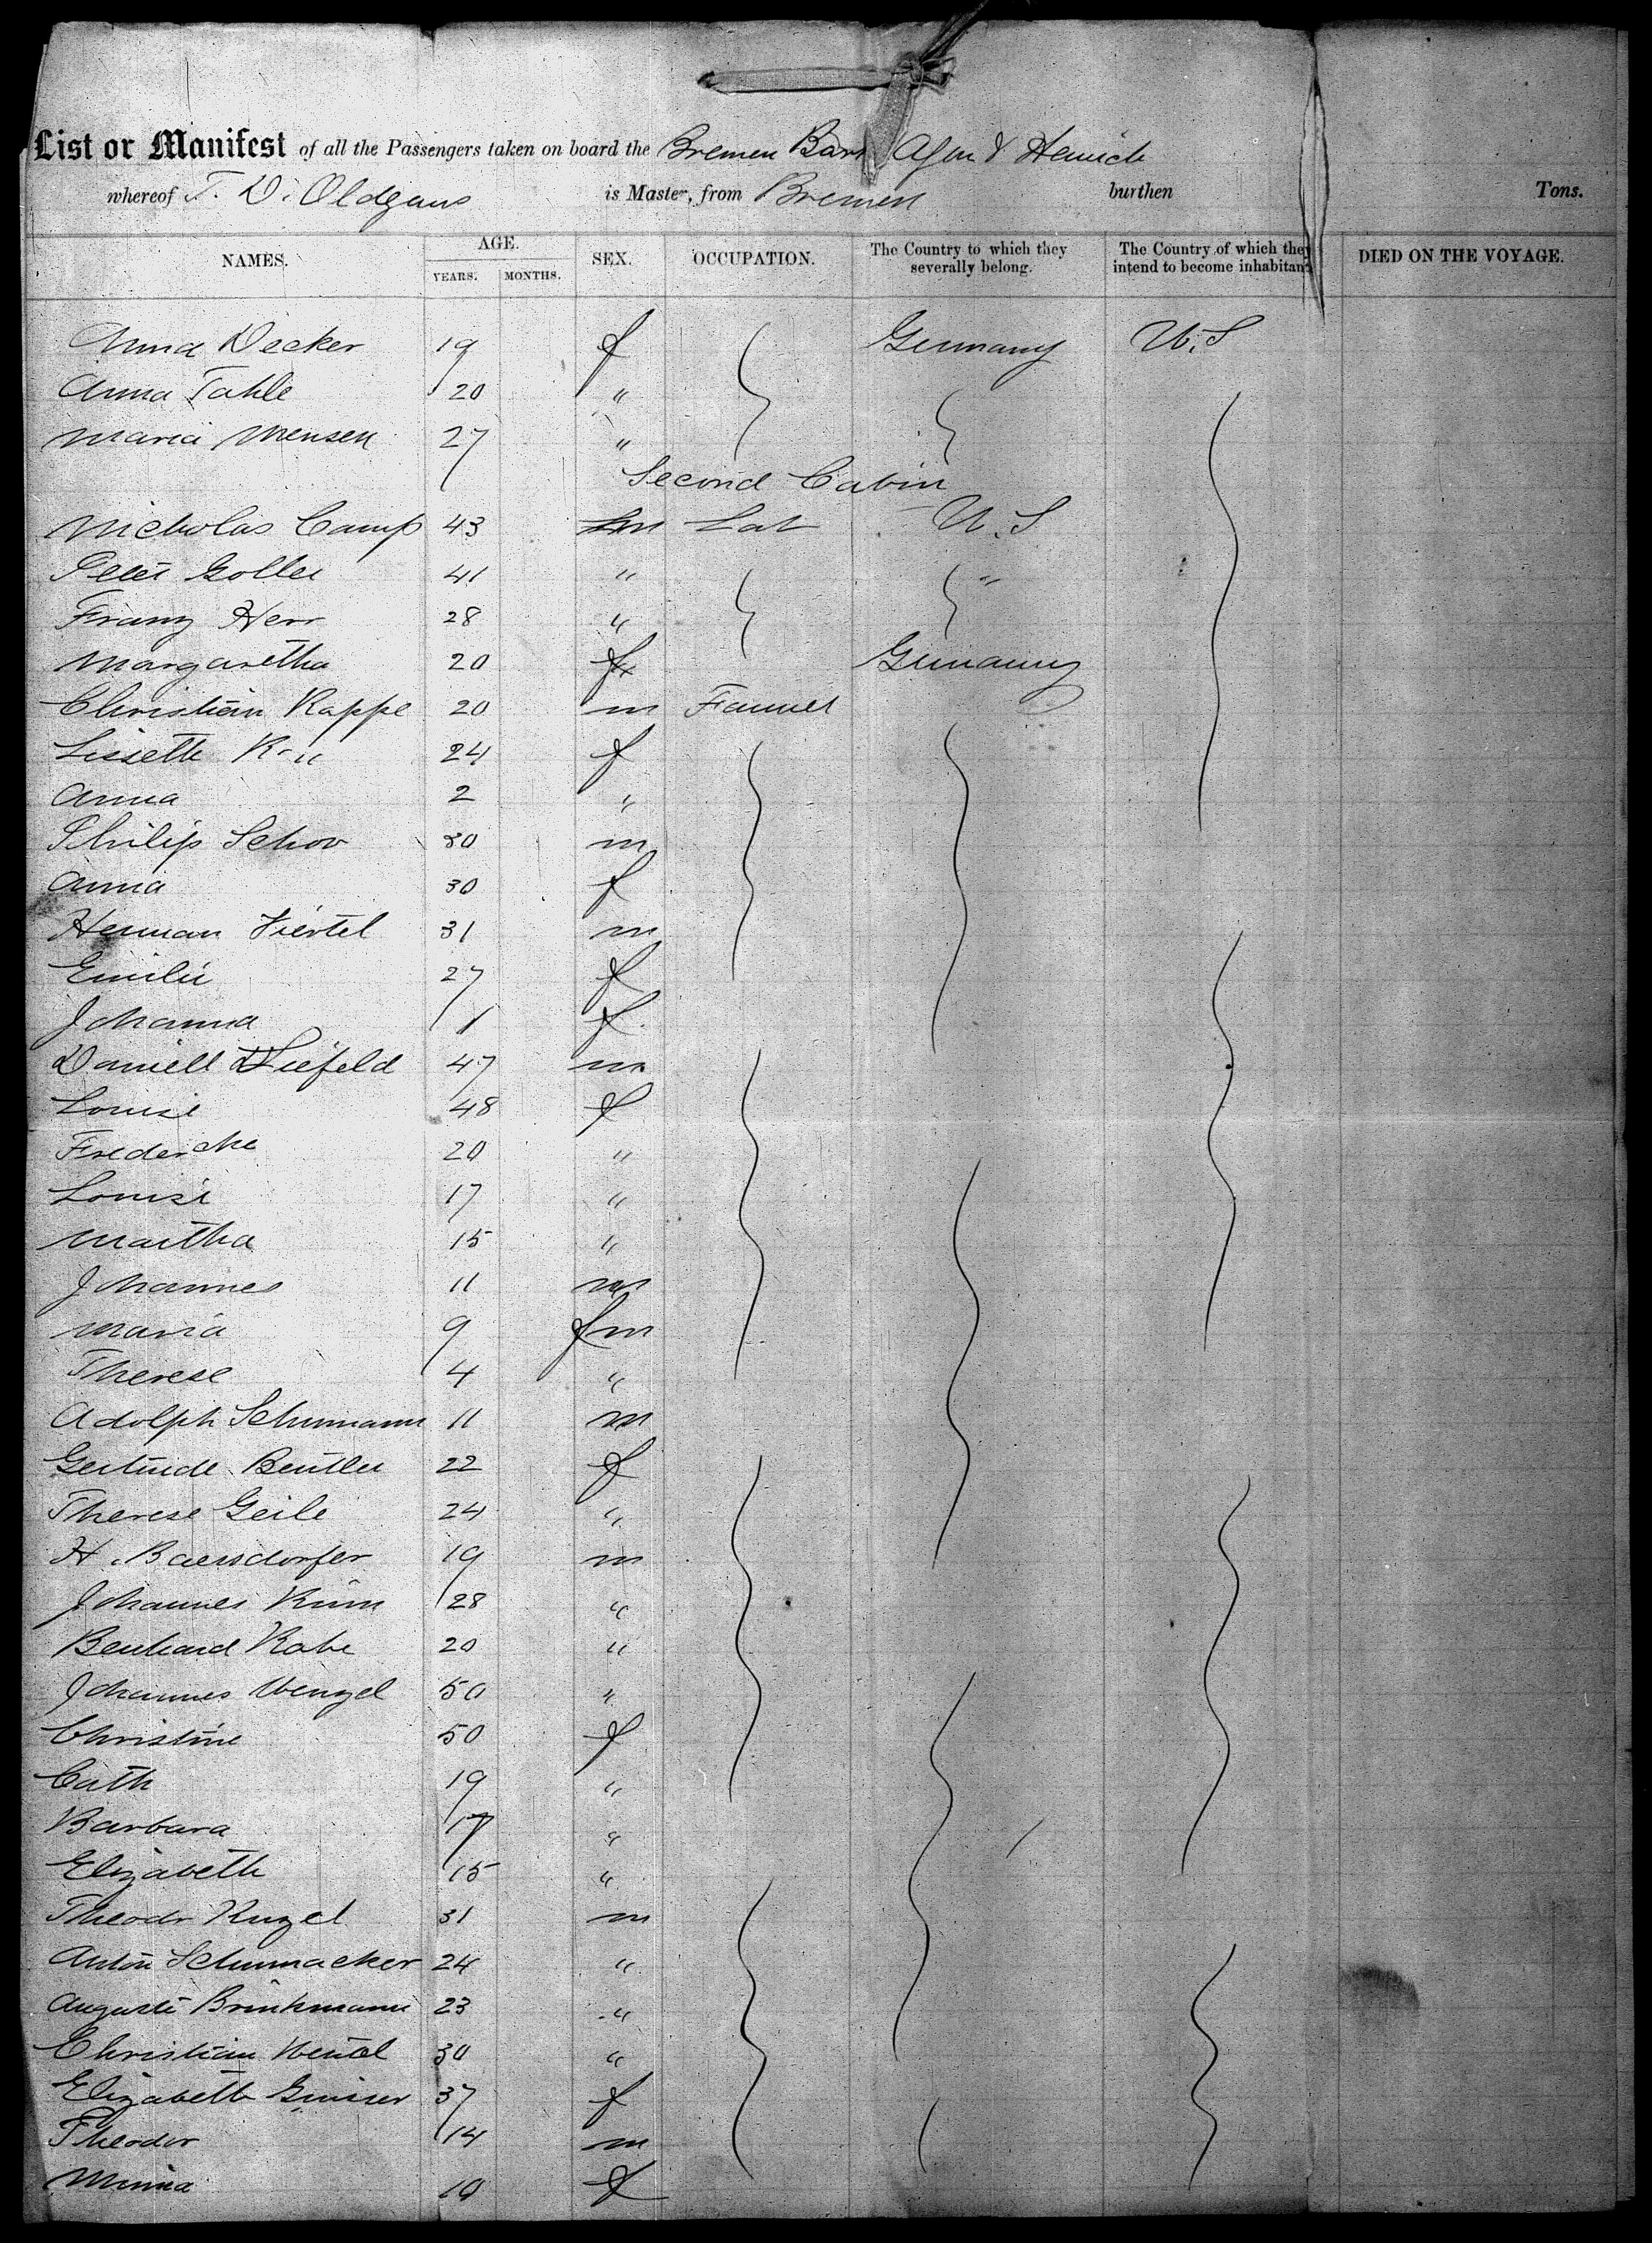 List or Manifest of all the Passengers taken on board the Bremen Bark & Heinrich
whereof T. D. Oldgans is Master, from Bremen burthen Tons.
NAMES. AGE. YEARS. MONTHS. SEX. OCCUPATION. The Country to which they severally belong. The Country of which they intend to become inhabitants DIED ON THE VOYAGE.
Anna Decker 19 f Germany U.S
Anna Tahle 20 "
Maria Mensen 27 "
Second Cabin
Nicholas Camp 43 m Lab U.S
Peter Goller 41 " "
Franz Herr 28 "
Margaretha 20 f Germany
Christian Kappe 20 m Farmer
Lissette 24 f
Anna 2 "
Philip Schor 30 m
Anna 30 f
Herman Viertel 31 m
Emilie 27 f
Johanna 1 f
Daniell Liefeld 47 m
Louise 48 f
Fredericke 20 "
Louise 17 "
Martha 15 "
Johannes 11 m
Maria 9 fm
Therese 4 "
Adolph Schumann 11 m
Gertrude Beutler 22 f
Therese Geile 24 "
H. Baersdorfer 19 m
Johannes 28 "
Benhard Rabe 20 "
Johannes Wenzel 50 "
Christine 50 f
Cath 19 "
Barbara 17 "
Elizabeth 15 "
Theodr Kugel 31 m
Anton Schumacker 24 "
Auguste Brinkmann 23 "
Christian 30 "
Elizabeth 37 f
Theodor 14 m
Minna 10 f